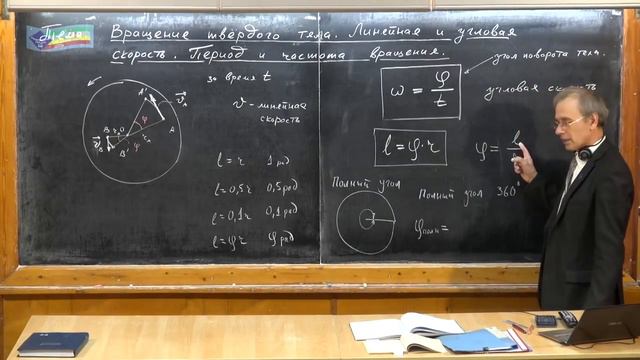 Тема
Вращение твёрдого тела. Линейная и угловая
скорость. Период и частота вращения.
за время t
v - линейная
скорость
l = r 1 рад
l = 0,5r 0,5 рад
l = 0,1r 0,1 рад
l = φ r φ рад
ω = φ/t
угол поворота тела.
угловая скорость
l = φ·r
φ = l
Полный угол
Полный угол 360°
φполн =
A'
A
B
O
B'
φ
φ